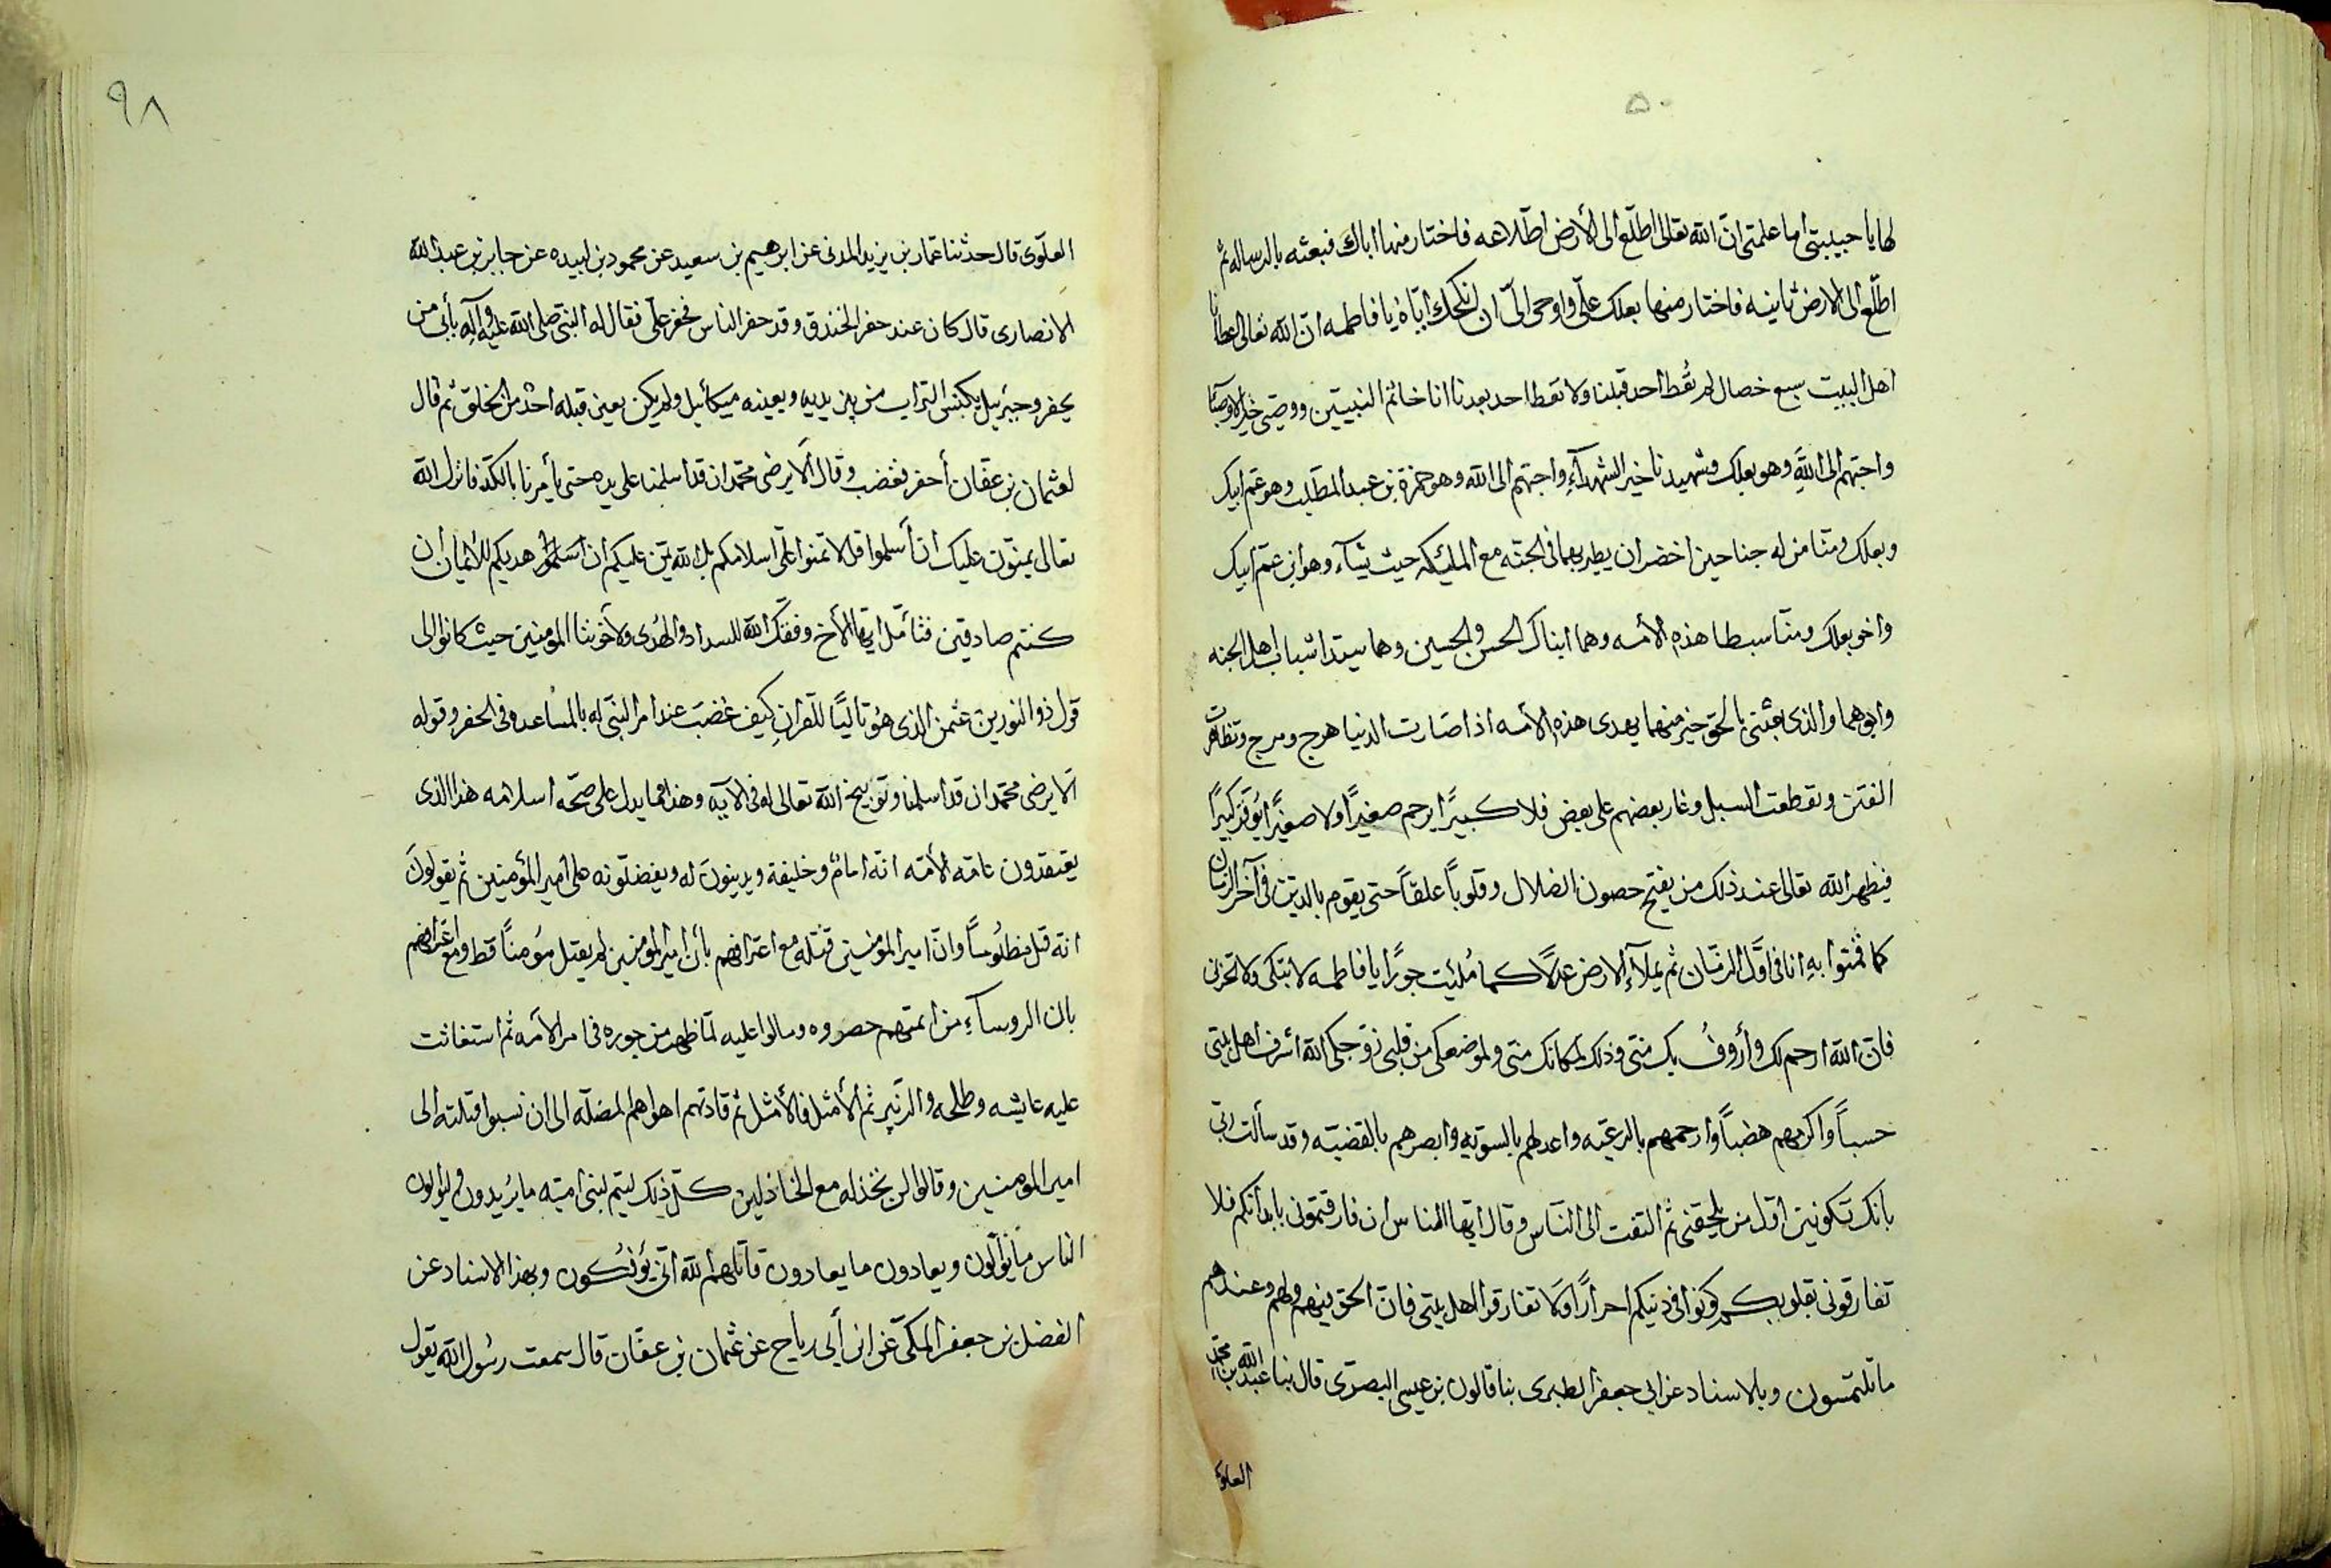 ۵۰
لها يا حبيبتى اما علمتى انّ الله تعالى اطلّع الى الأرض اطّلاعه فاختار منها اباك فبعثه بالرساله ثم
اطلّع الى الارض ثانيه فاختار منها بعلك علّى واوحى الىّ ان انكحك ايّاه يا فاطمه انّ الله تعالى اعطانا
اهل البيت سبع خصال لم تُعط احد قبلنا ولا تعطا احد بعدنا انا خاتم النبيّين ووصيى خير الاوصيآ
واحبّهم الى الله وهو بعلك وشهيدنا خير الشهدآءِ واحبّهم الى الله وهو حمزة بن عبد المطّلب وهو عمّ ابيك
وبعلك ومنّا من له جناحين اخضران يطير بهما فى الجنّه مع المليكه حيث يشآء وهو ابن عمّ ابيك
واخو بعلك ومنّا سبطا هذه الأمه وهما ابناك الحسن والحسين وهما سيّدا شباب اهل الجنه
وابوهما والذى بعثنى بالحق خير منهما يهدى هذه الأمه اذا صارت الدنيا هرج ومرج وتظاهرت
الفتن وتقطعت السبل وغار بعضهم على بعض فلا كبيرًا يرحم صغيرًا ولا صغيرًا يُوقّر كبيرًا
فيظهر الله تعالى عند ذلك من يفتح حصون الضلال وقلوباً غلقاً حتى يقوم بالدين فى آخر الزمان
كما قمتوا به انا فى اوّل الزمّان ثم يملآء الارض عدلًا كما مُلئت جورًا يا فاطمه لا تبكى ولا تحزن
فانّ الله ارحم لك وأروفُ بك منّى وذلك لمكانك منّى ولموضعكى من قلبى زوّجكى الله اشرف اهل بيتى
حسباً واكرمهم منصباً وارحمهم بالرعيّه واعدلهم بالسويّه وابصرهم بالقضيّه وقد سألت ربّى
بانك تكونين اوّل من يلحقنى ثم التفت الى النّاس وقال ايّها الناس ان فارقتمونى بابدانكم فلا
تفارقونى بقلوبكم وكونوا فى دنيكم احرارًا ولا تفارقوا اهل بيتى فانّ الحق فيهم ولهم وعندهم
ما تلتمسون وبالاسناد عن ابى جعفر الطبرى بنا قالون بن عيسى البصرّى قال بنا عبد الله بن محمّد
العلوى
٩٨
العلوّى قال حدثنا عمّار بن يزيد المدنى عن ابرهيم بن سعيد عن محمود بن لبيده عن جابر بن عبد الله
الانصارى قال كان عند حفر الخندق وقد حفر الناس فحفر علّى فقال له النبّى صلى الله عليه وآله بأبى من
يحفر وجبرئيل يكنس التراب من بين يديه ويعينه ميكائيل ولم يكن يعين قبله احدٌ من الخلق ثم قال
لعثمان بن عفّان أحفر فغضب وقال ألا يرضى محمّد ان قد اسلمنا على يده حتى يأمرنا بالكدّ فانزل الله
تعالى يمنوّن عليك ان أسلموا قل لا تمنوا علّى اسلامكم بل الله يمّن عليكم ان اسلموا هديكم للأيمان ان
كنتم صادقين فتأمّل ايّها الأخ وفقّك الله للسداد والهُدى ولأخوتنا المومنين حيث كانوا الى
قول ذو النورين عثمن الذى هو تاليًا للقران كيف غضبَ عند امر النبّى له بالمساعده فى الحفر وقوله
ألا يرضى محمّد ان قد اسلمنا وتوبيخ الله تعالى له فى الآيه وهذا مما يدل على صحّه اسلامه هذا الذى
يعتقدون نامّه الأمّه انّه امامٌ وخليفة ويدينونَ له ويفضلّونه على امير المؤمنين ثم يقولونَ
انه قتل مظلُومًا وانّ امير المؤمنين قتله مع اعترافهم بأن امير المومنين لم يقتل مؤمناً قط ومع اعترافهم
بان الروسآءِ من ائمتهم حصروه ومالوا عليه لمّا ظهر من جوره فى امر الأمه ثم استغاثت
عليه عايشه وطلحه والزبير ثم الأمثل فالأمثل ثم قادتهم اهواهم المضلّه الى ان نسبوا قتلته الى
امير المومنين وقالوا لن نخذله مع الخاذلين كلّ ذلك ليتم لبنى اميّه ما يُريدون وليوالون
الناس ما يوالون ويعادون ما يعادون قاتلهم الله انّى يؤفكون وبهذا الاسناد عن
الفضل بن جعفر المكّى عن ابن أبى رباح عن عثمان بن عفّان قال سمعت رسُول الله يقول